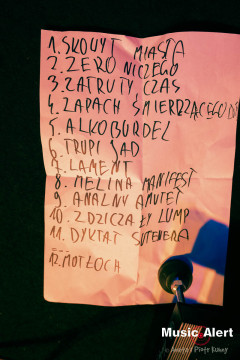 1. SKOWYT MIASTA
2. ZERO NICZEGO
3. ZATRUTY CZAS
4. ZAPACH ŚMIERDZĄCEGO
5. ALKOBURDEL
6. TRUPI SAD
7. LAMENT
8. MELINA MANIFEST
9. ANALNY AMULET
10. ZDZICZAŁY LUMP
11. DYKTAT SUTENERA
12. MOTŁOCH
Music Alert